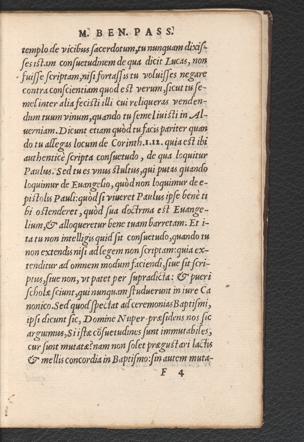 M. BEN. PASS.
templo de vicibus sacerdotum, tu nunquam dixis-
ses istam consuetudinem de qua dicit Lucas, non
fuisse scriptam, nisi fortassis tu voluisses negare
contra conscientiam quod est verum, sicut tu se-
mel inter alia fecisti illi cui reliqueras venden-
dum tuum vinum, quando tu semel iuisti in Al-
uerniam. Dicunt etiam quòd tu facis pariter quan
do tu allegas locum de Corinth. 1.11. quia est ibi
authenticè scripta consuetudo, de qua loquitur
Paulus. Sed tu es vnus stultus, qui putas quando
loquimur de Euangelio, quòd non loquimur de e-
pistolis Pauli: quòd si viueret Paulus ipse benè ti
bi ostenderet, quòd sua doctrina est Euange-
lium, & alloqueretur bene tuam barretam. Et i-
ta tu non intelligis quid sit consuetudo, quando tu
non extendis nisi ad legem non scriptam: quia ex-
tenditur ad omnem modum faciendi, siue sit scri-
ptus, siue non, vt patet per supradicta: & pueri
scholæ sciunt, qui nunquam studuerunt in iure Ca
nonico. Sed quod spectat ad ceremonias Baptismi,
ipsi dicunt sic, Domine Nuper-præsidens nos sic
arguimus, Si istæ cōsuetudines sunt immutabiles,
cur sunt mutatæ? nam non solet prægustari lactis
& mellis concordia in Baptismo: sin autem muta-
F 4